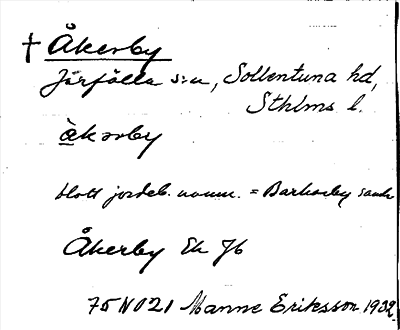 † Åkerby
Järfälla s:n, Sollentuna hd,
Sthlms l.
àkərby
blott jordeb. namn. = Barkarby
Åkerby Ek 76
75 N 021 Manne Eriksson 1932